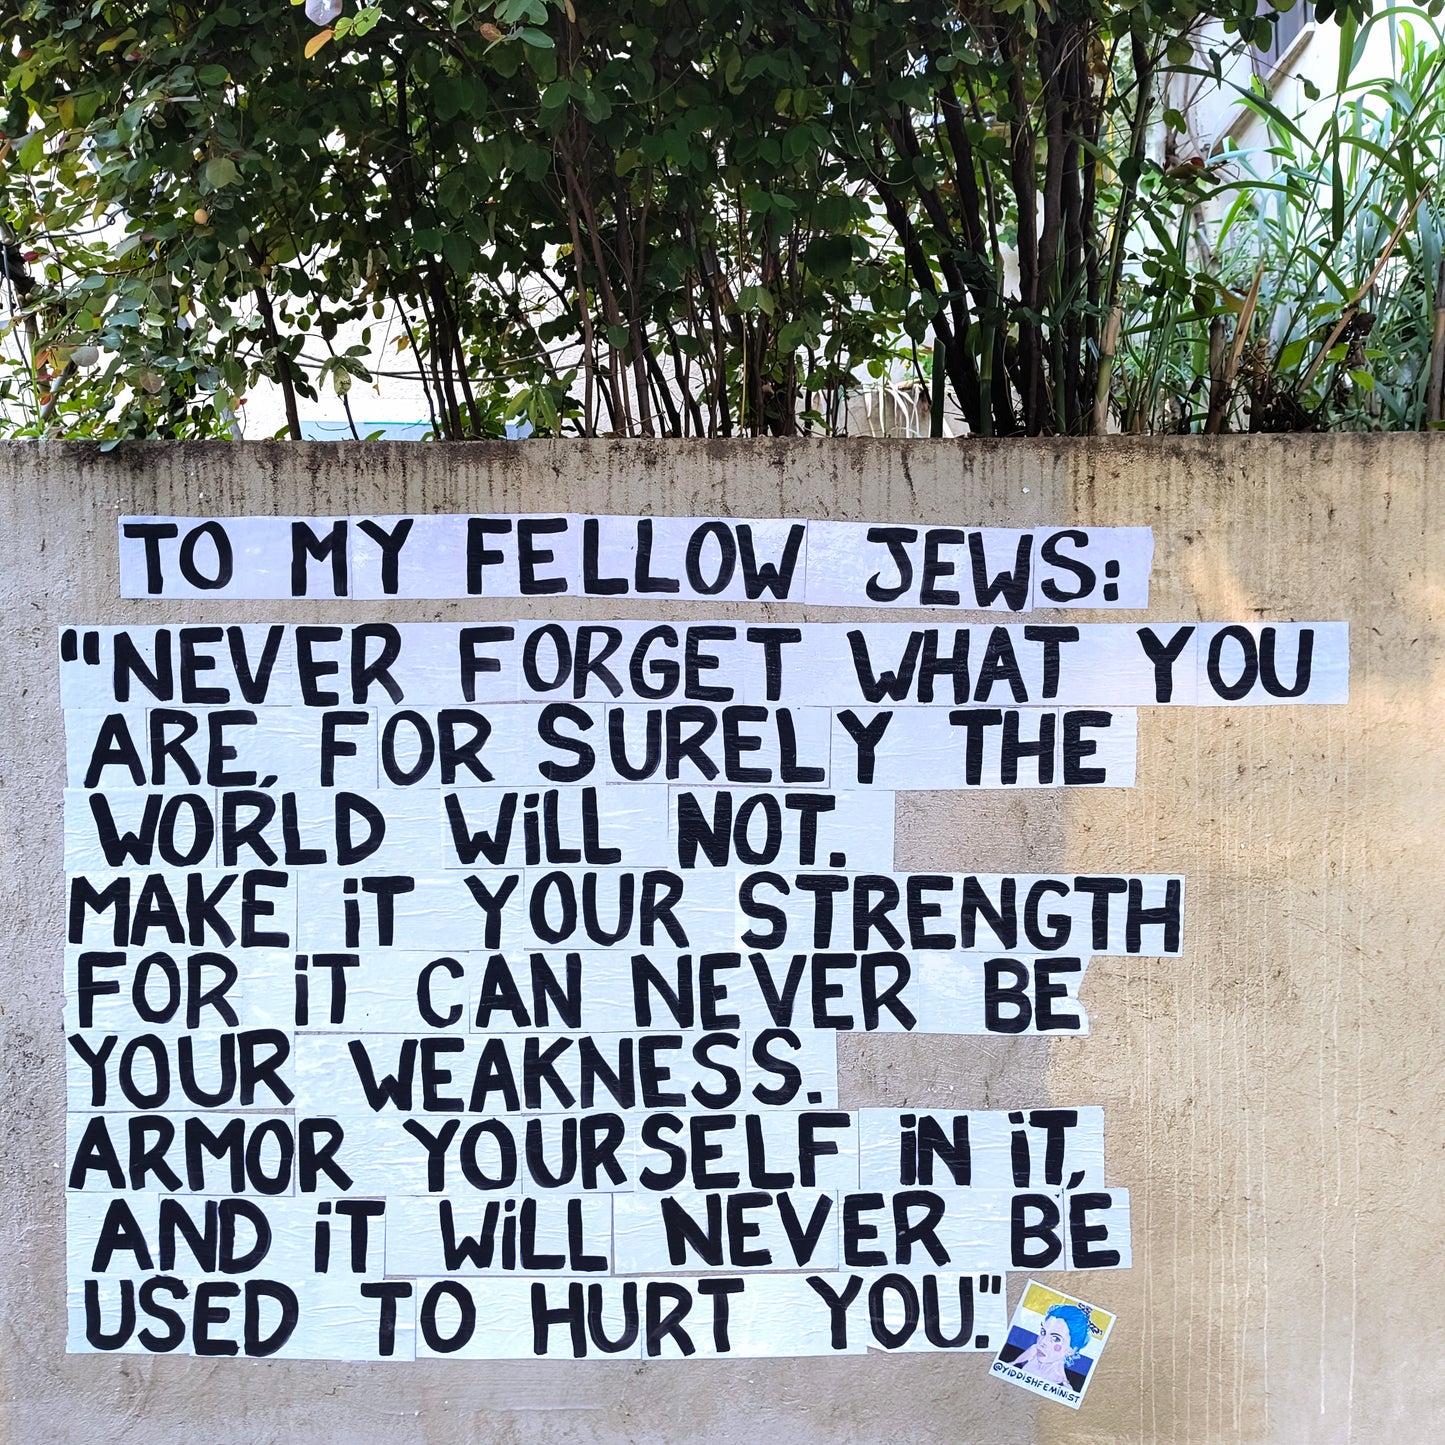 TO MY FELLOW JEWS:
"NEVER FORGET WHAT YOU
ARE, FOR SURELY THE
WORLD WiLL NOT.
MAKE iT YOUR STRENGTH
FOR iT CAN NEVER BE
YOUR WEAKNESS.
ARMOR YOURSELF iN iT,
AND iT WiLL NEVER BE
USED TO HURT YOU."
@YIDDISHFEMINIST